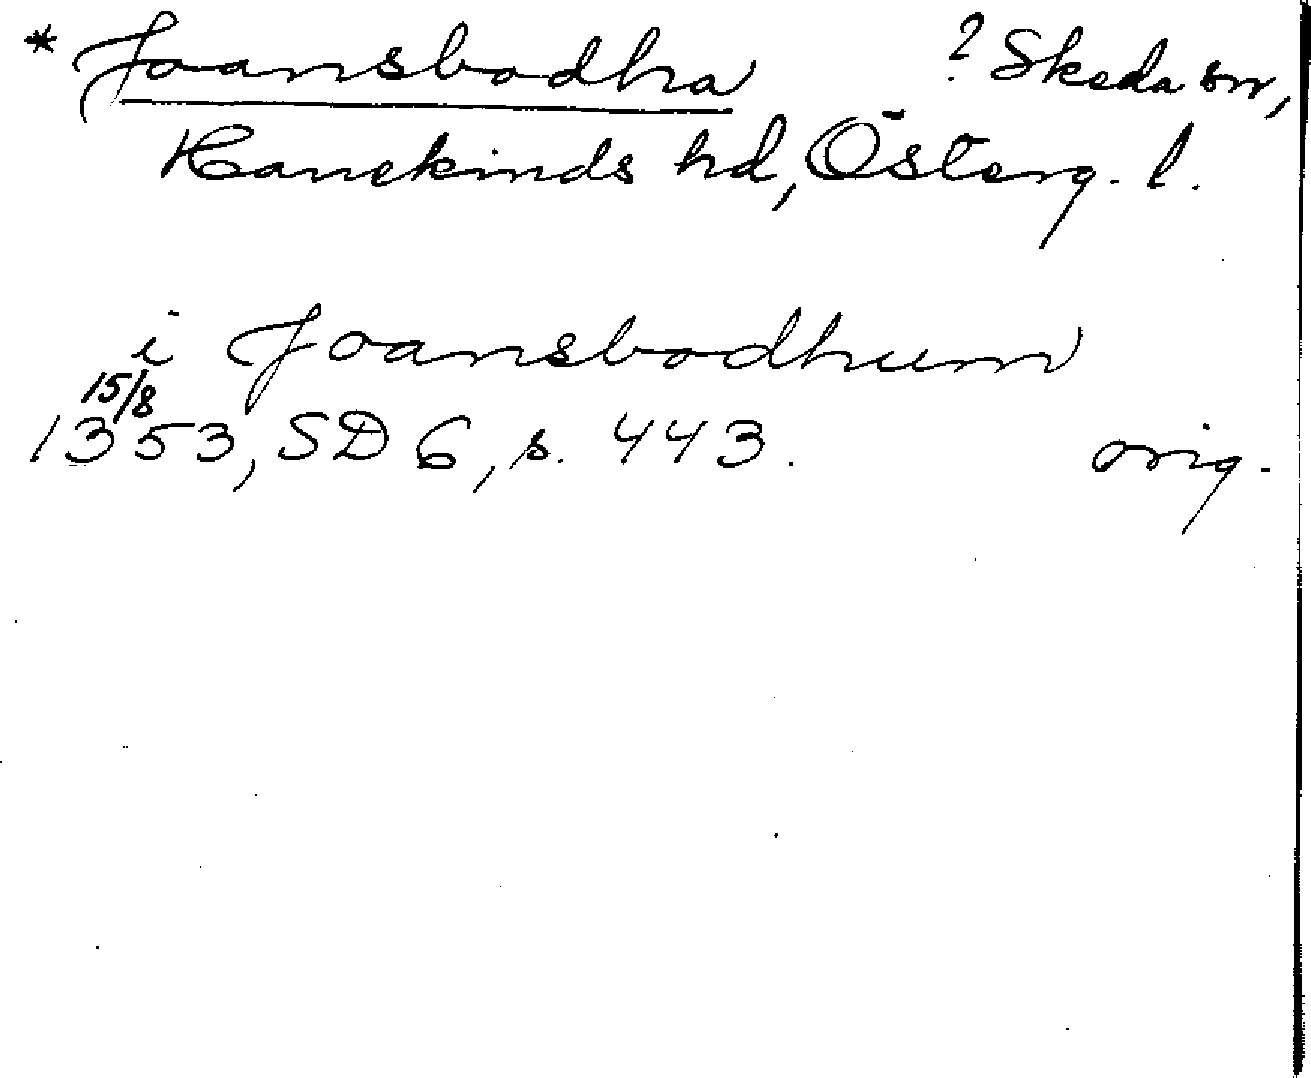 * Joansbodha ? Skeda sn,
Hanekinds hd, Österg. l.
i Joansbodhum
15/8
1353, SD 6, s. 443. orig.